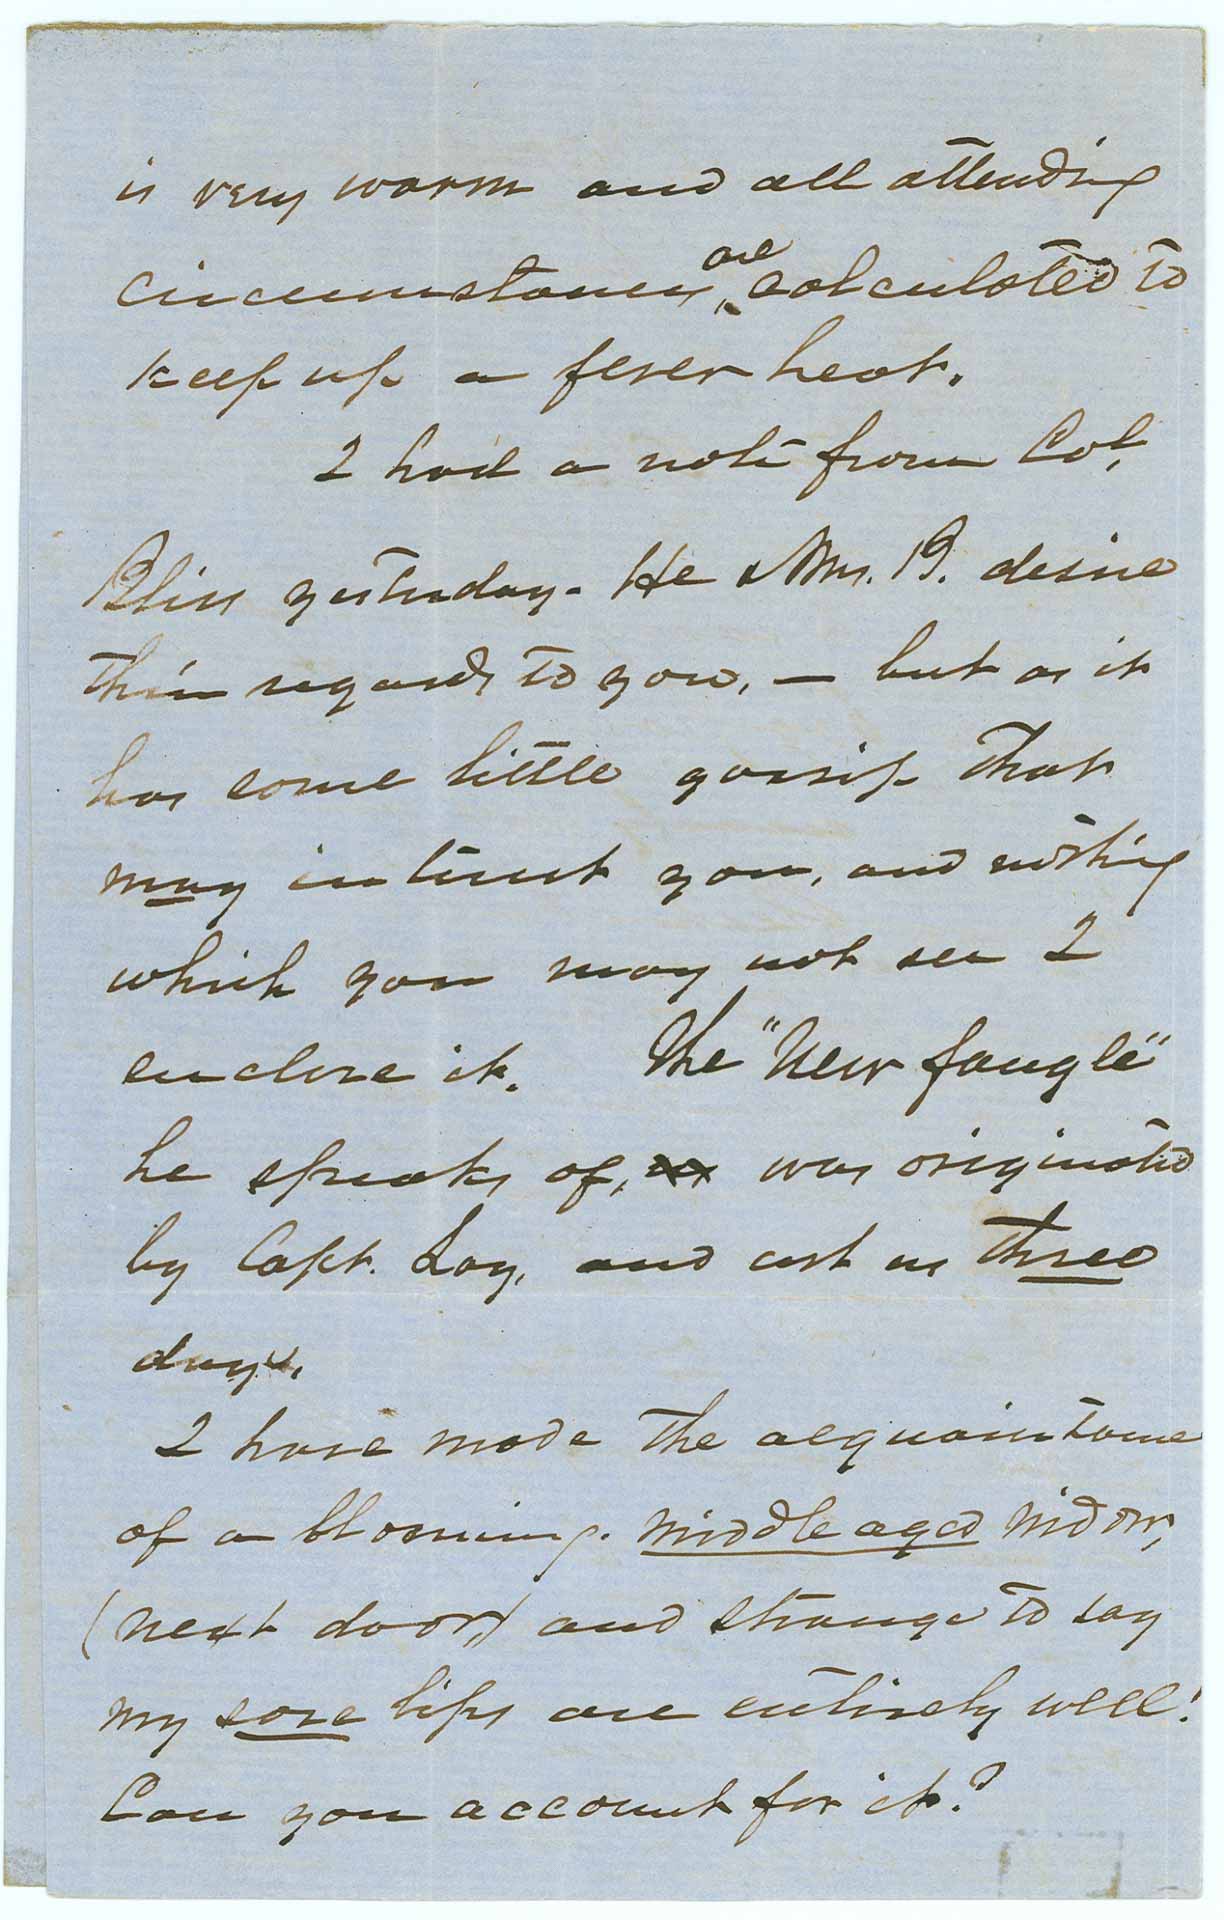 is very warm and all attending
circumstances are calculated to
keep up a fever heat.
I had a note from Col.
Bliss yesterday. He & Mrs. B. desire
their regards to you, — but as it
has some little gossip that
may interest you, and nothing
which you may not see I
enclose it. The "New fangle"
he speaks of, was originated
by Capt. Loy, and cost us three
days.
I have made the acquaintance
of a blooming middle aged widow,
(next door) and strange to say
my sore lips are entirely well!
Can you account for it?